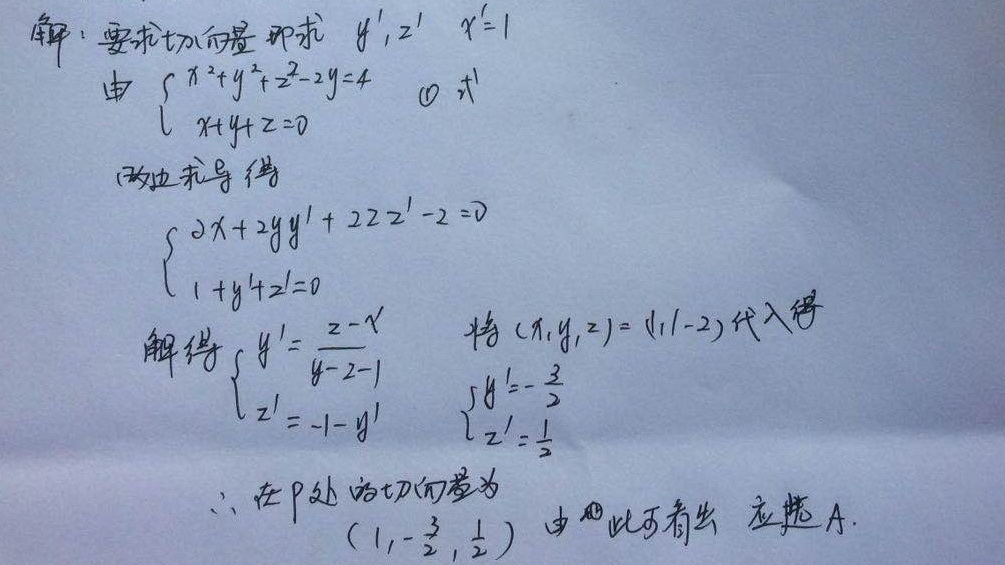 解：要求切向量 即求 y',z' x'=1
由 { x²+y²+z²-2y=4 ①
x+y+z=0
两边求导得
{ 2x+2yy'+2zz'-2=0
1+y'+z'=0
解得 { y'=(z-x)/(y-z-1) 将(x,y,z)=(1,1-2)代入得
z'=-1-y' { y'=-3/2
z'=1/2
∴在P处的切向量为
(1,-3/2,1/2) 由此可看出 应选A.